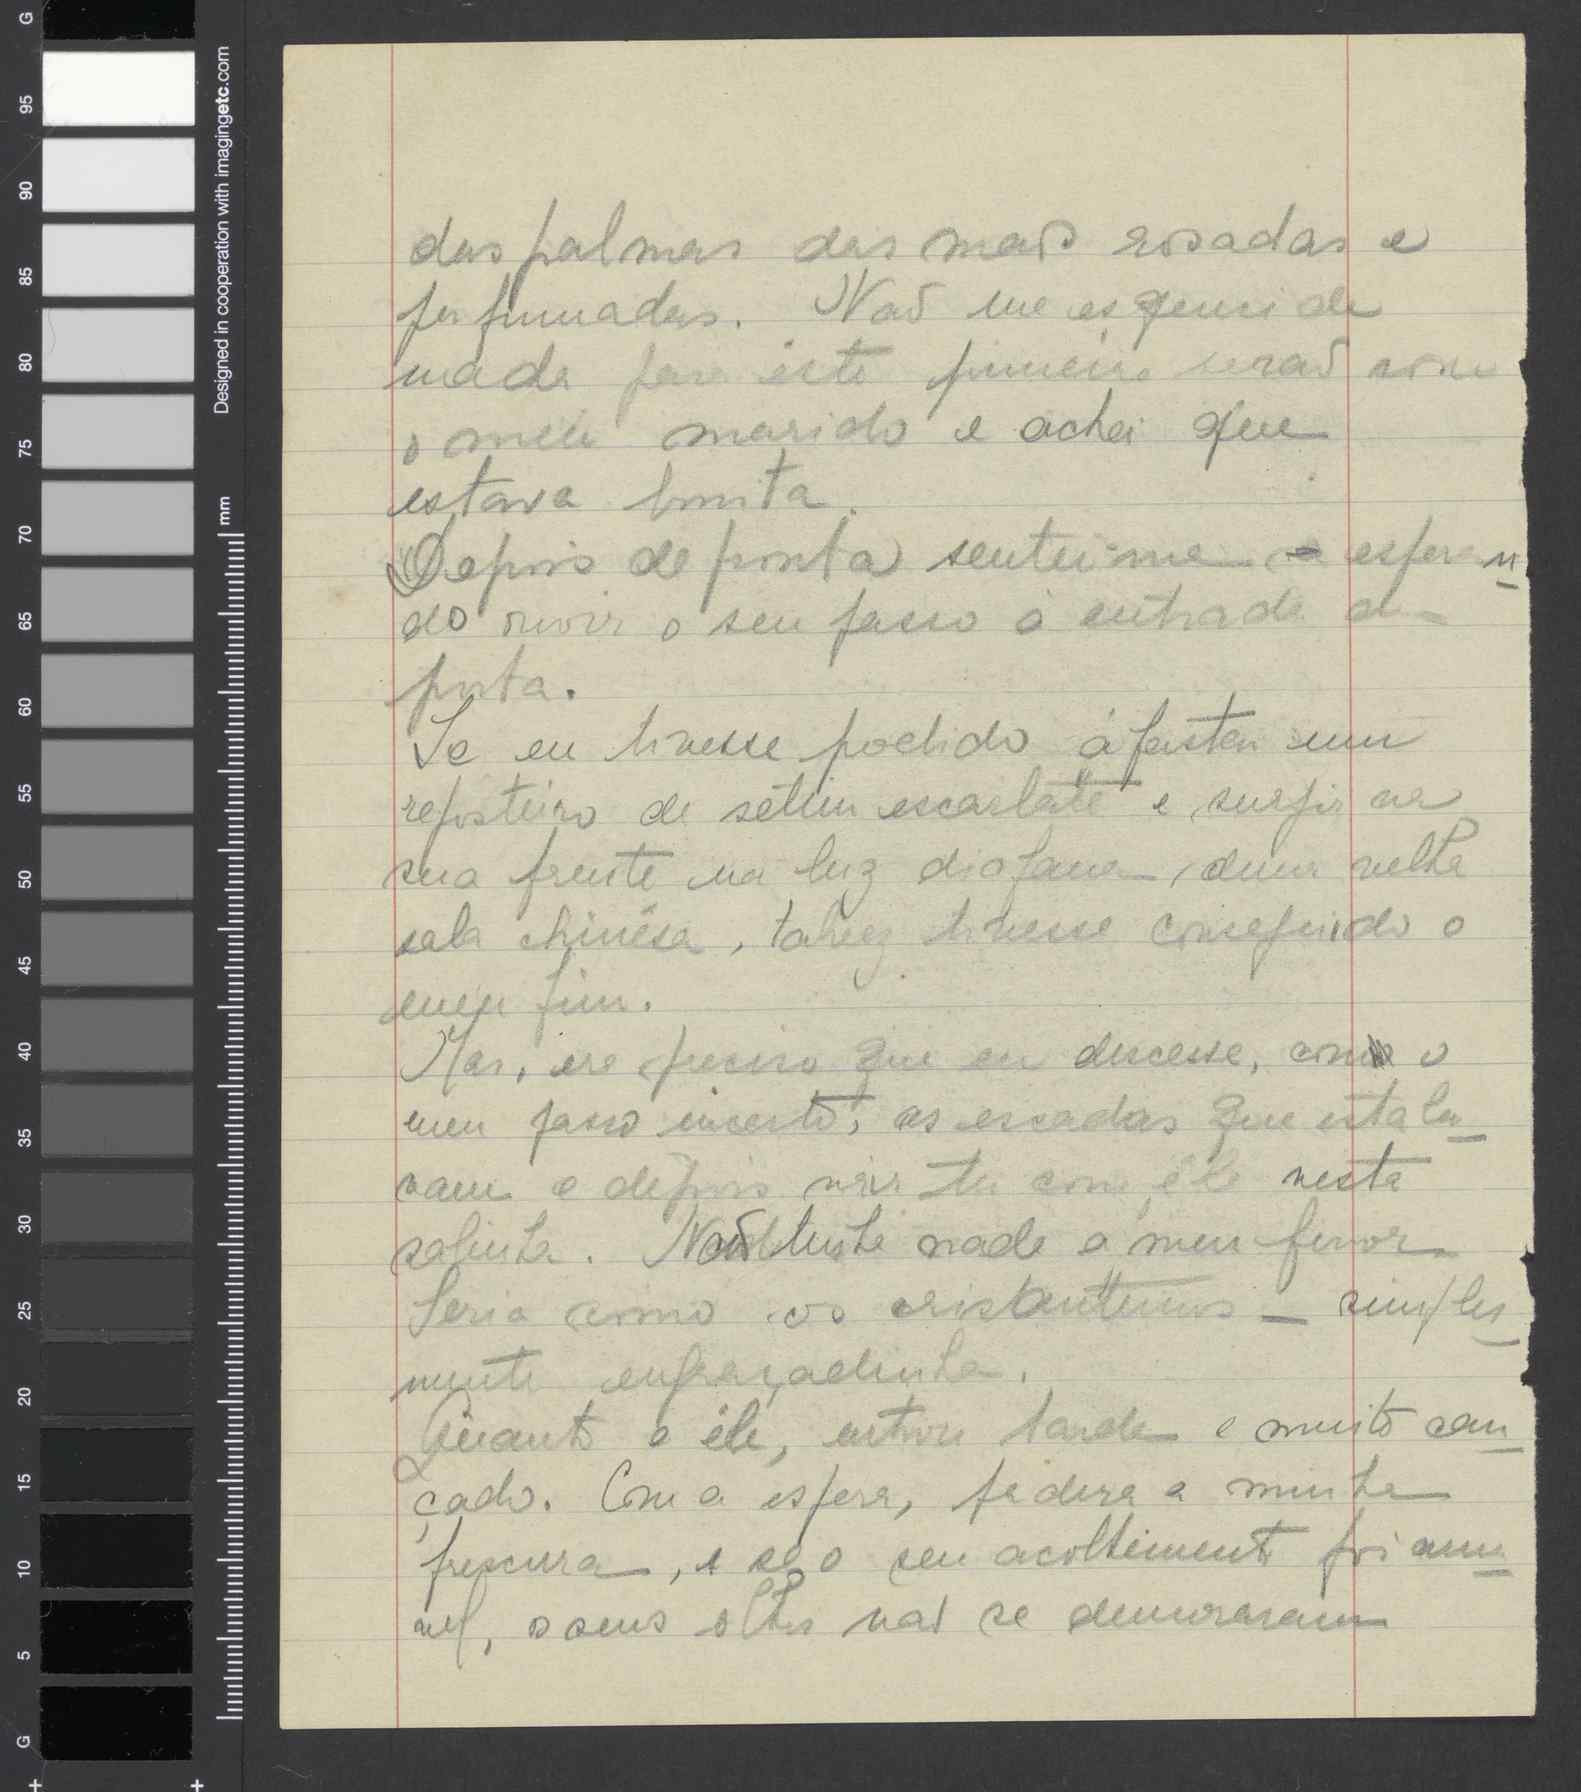 das palmas das mãos rosadas e
perfumadas. Não me esqueci de
nada para êste primeiro serão com
o meu marido e achei que
estava bonita.
Depois de pronta sentei-me a esperan
do ouvir o seu passo à entrada da
porta.
Se eu tivesse podido afastar um
reposteiro de sétim escarlate e surgir na
sua frente na luz diafana duma velha
sala chinêsa, talvez tivesse conseguido o
meu fim.
Mas, era preciso que eu descesse, com o
meu passo incerto, as escadas que estala
vam e depois vir ter com êle nesta
salinha. Não tinha nada a meu favor.
Seria como os crisantemos — simples
mente engraçadinha.
Quanto a êle, entrou tarde e muito can
çado. Com a espera, perdera a minha
frescura, e se o seu acolhimento foi amá
vel, os seus olhos não se demoraram
G
95
90
85
80
75
70
65
60
55
50
45
40
35
30
25
20
15
10
5
G
mm
Designed in cooperation with imagingetc.com